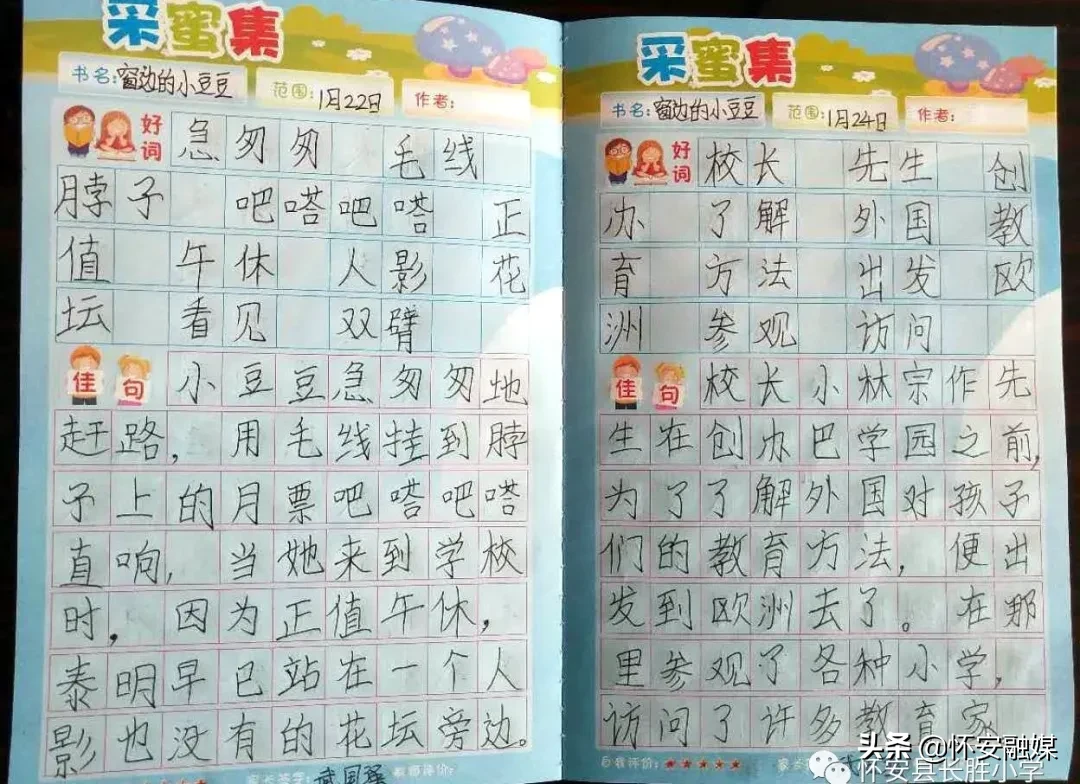 采蜜集
书名:窗边的小豆豆 范围:1月22日 作者:
好词 急匆匆 毛线
脖子 吧嗒吧嗒 正
值 午休 人影 花
坛 看见 双臂
佳句 小豆豆急匆匆地
赶路,用毛线挂到脖
子上的月票吧嗒吧嗒
直响,当她来到学校
时,因为正值午休,
泰明早已站在一个人
影也没有的花坛旁边。
家长签字: 教师评价:
采蜜集
书名:窗边的小豆豆 范围:1月24日 作者:
好词 校长 先生 创
办 了解 外国 教
育 方法 出发 欧
洲 参观 访问
佳句 校长小林宗作先
生在创办巴学园之前,
为了了解外国对孩子
们的教育方法,便出
发到欧洲去了。在那
里参观了各种小学,
访问了许多教育家
自我评价:★★★★★
头条 @怀安融媒
怀安县长胜小学